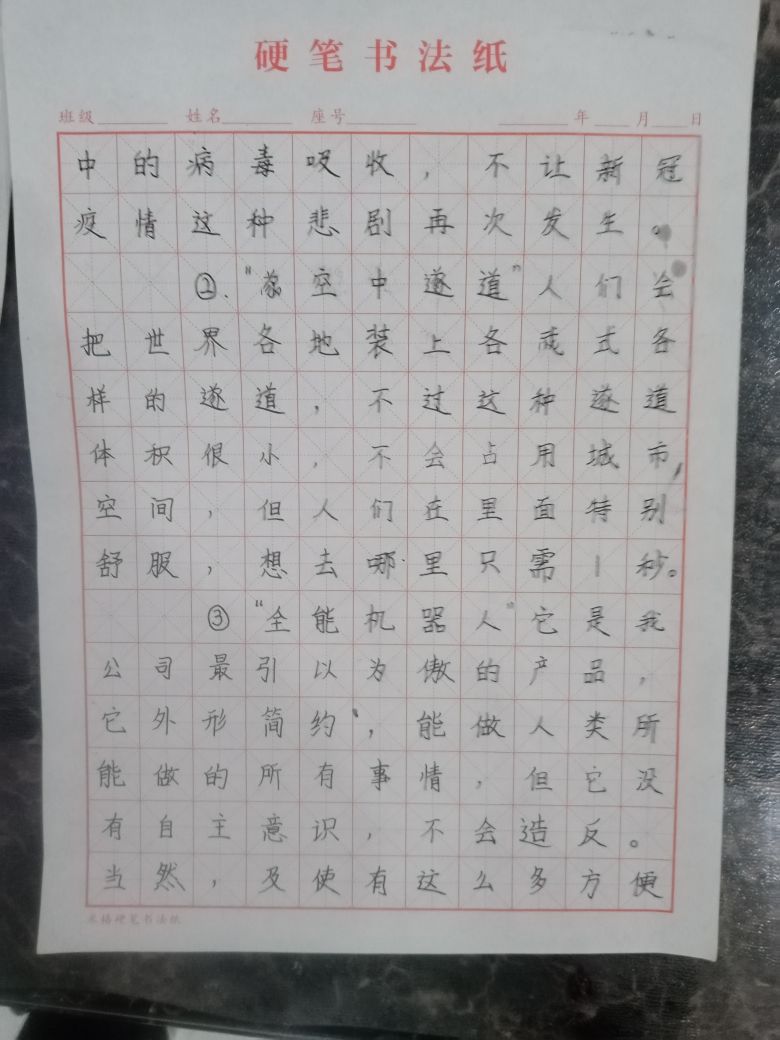 硬笔书法纸
班级 姓名 座号 年 月 日
中的病毒吸收，不让新冠
疫情这种悲剧再次发生。
②.“高空中遂道”人们会
把世界各地装上各式各
样的遂道，不过这种遂道
体积很小，不会占用城市
空间，但人们在里面特别
舒服，想去哪里只需1秒。
③“全能机器人”它是我
公司最引以为傲的产品，
它外形简约，能做人类所
能做的所有事情，但它没
有自主意识，不会造反。
当然，及使有这么多方便
米格硬笔书法纸